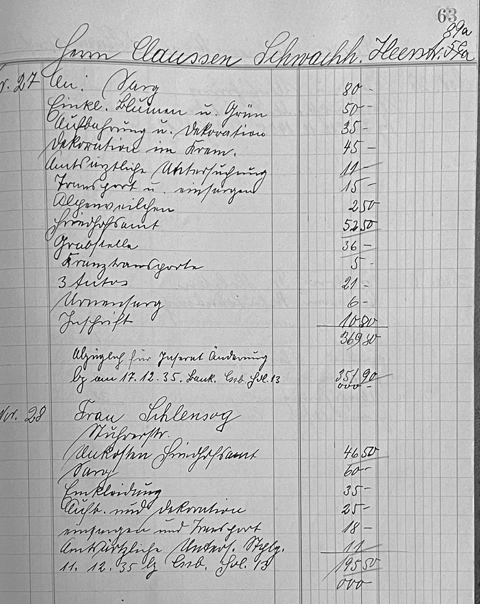 63
89a
Herrn Claussen Schwachh. Heerstr. 59a
Nov. 27 An: Sarg 80 -
Einkl. Blumen u. Grün 50 -
Aufbahrung u. Dekoration 35 -
Dekoration im Krem. 45 -
Amtsärztliche Untersuchung 11 -
Transport u. einsargen 15 -
Alpenveilchen 2 50
Friedhofsamt 52 50
Grabstelle 36 -
Kranztransporte 5 -
3 Autos 21 -
Urnensarg 6 -
Inschrift 10 80
369 80
Abzüglich für Inserat Änderung
bz am 17.12.35. Bank. Fol. 13 351 90
000
Nov. 28 Frau Schlensog
Stuhrerstr.
Unkosten Friedhofsamt 46 50
Sarg 60 -
Einkleidung 35 -
Aufb. und Dekoration 25 -
einsargen und Transport 18 -
Amtsärztliche Unters. 11
11. 12. 35 bz Fol. 13 195 50
000